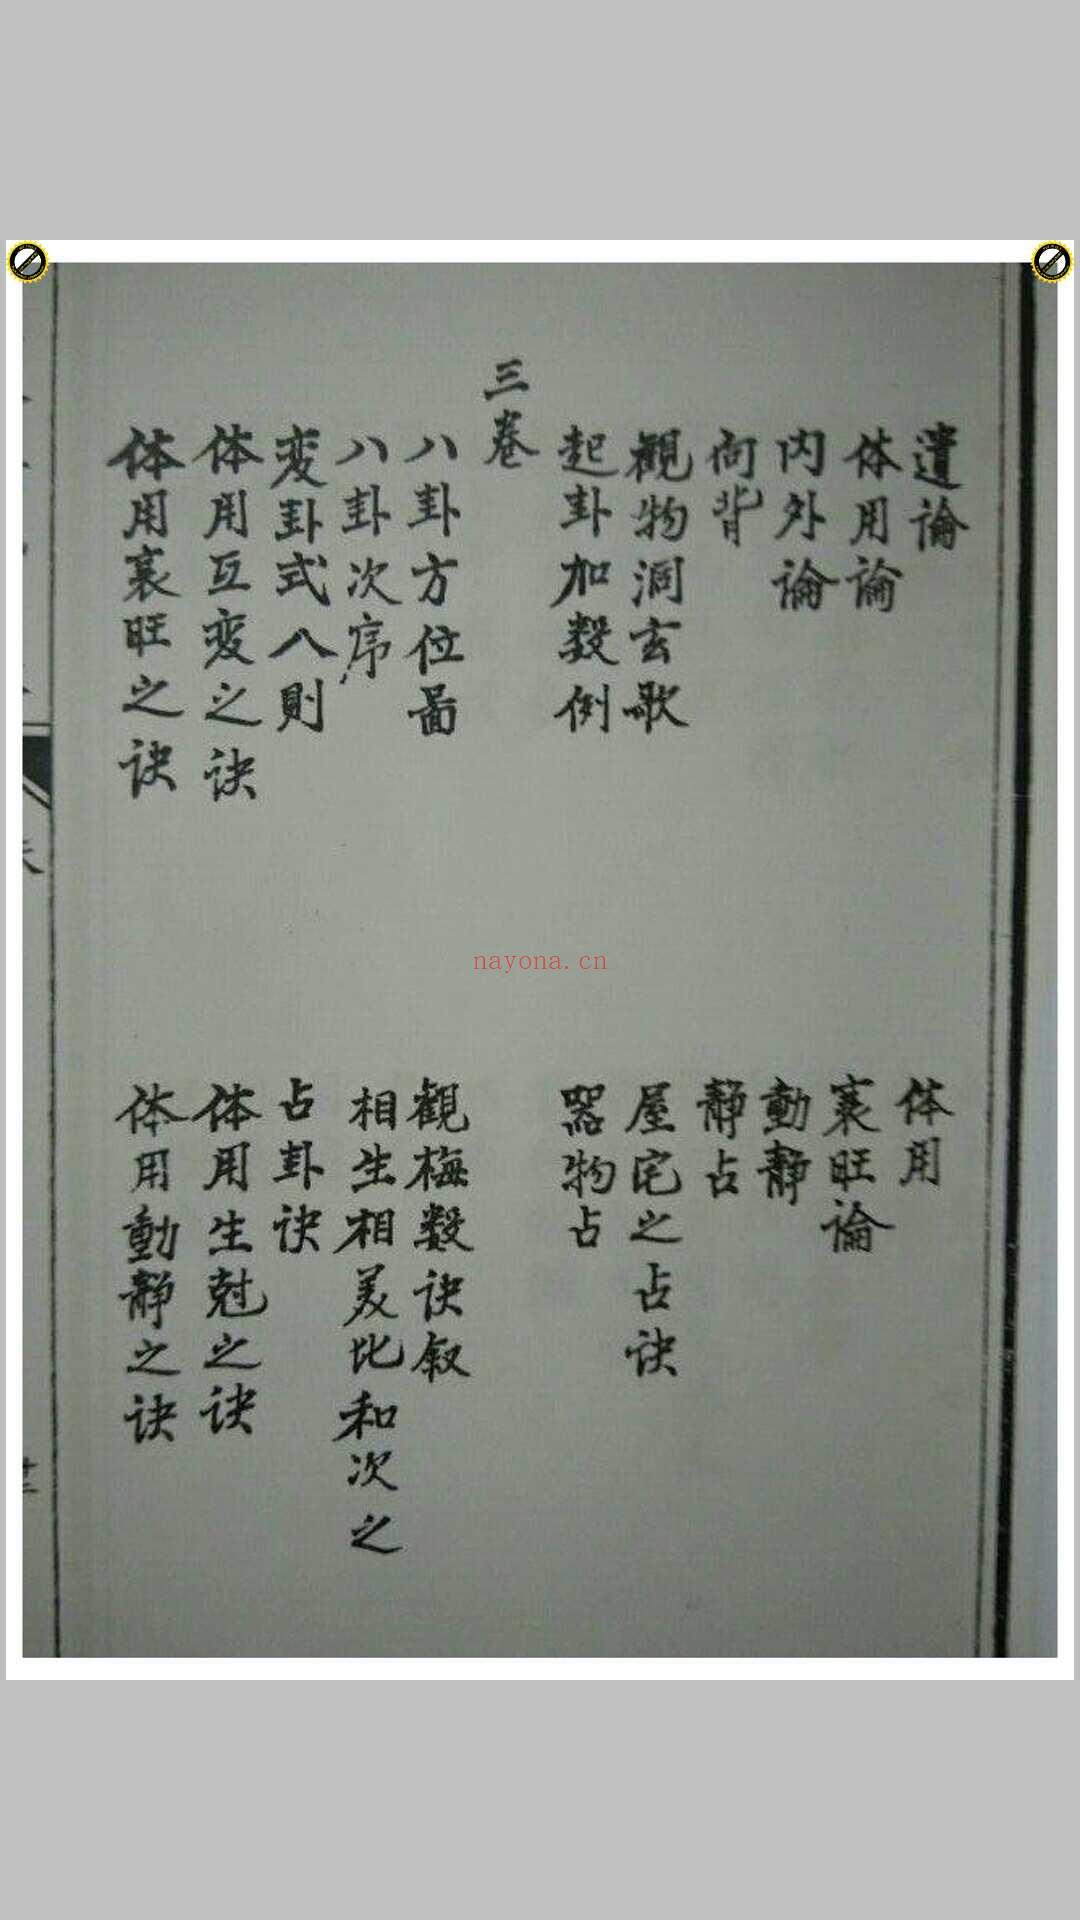 遺論
体用
体用論
衰旺論
内外論
動静
向背
静占
觀物洞玄歌
屋宅之占诀
起卦加数例
器物占
三卷
八卦方位啚
觀梅数诀叙
八卦次序
相生相美比和次之
変卦式八則
占卦诀
体用互変之诀
体用生尅之诀
体用衰旺之诀
体用動静之诀
nayona.cn